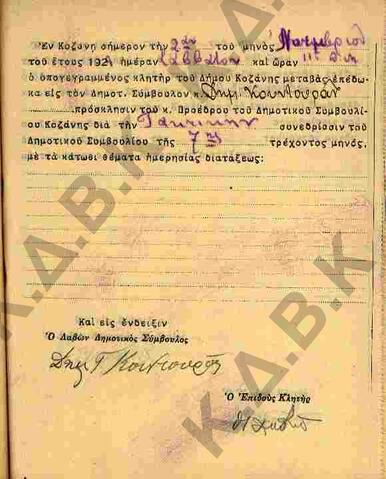 Ἐν Κοζάνῃ σήμερον τὴν 2αν τοῦ μηνὸς Νοεμβρίου
τοῦ ἔτους 192 ἡμέραν Σάββατον καὶ ὥραν 11 π.μ.
ὁ ὑπογεγραμμένος κλητὴρ τοῦ Δήμου Κοζάνης μεταβὰς ἐπέδω-
κα εἰς τὸν Δημοτ. Σύμβουλον κ. Δημ. Κουντουρᾶν
πρόσκλησιν τοῦ κ. Προέδρου τοῦ Δημοτικοῦ Συμβουλί-
ου Κοζάνης διὰ τὴν Τακτικὴν συνεδρίασιν τοῦ
Δημοτικοῦ Συμβουλίου τῆς 7ης τρέχοντος μηνός,
μὲ τὰ κάτωθι θέματα ἡμερησίας διατάξεως:
Καὶ εἰς ἔνδειξιν
Ὁ Λαβὼν Δημοτικὸς Σύμβουλος
Δημ Γ Κουντουρᾶς
Ὁ Ἐπιδοὺς Κλητὴρ
Κ.Δ.Β.Κ